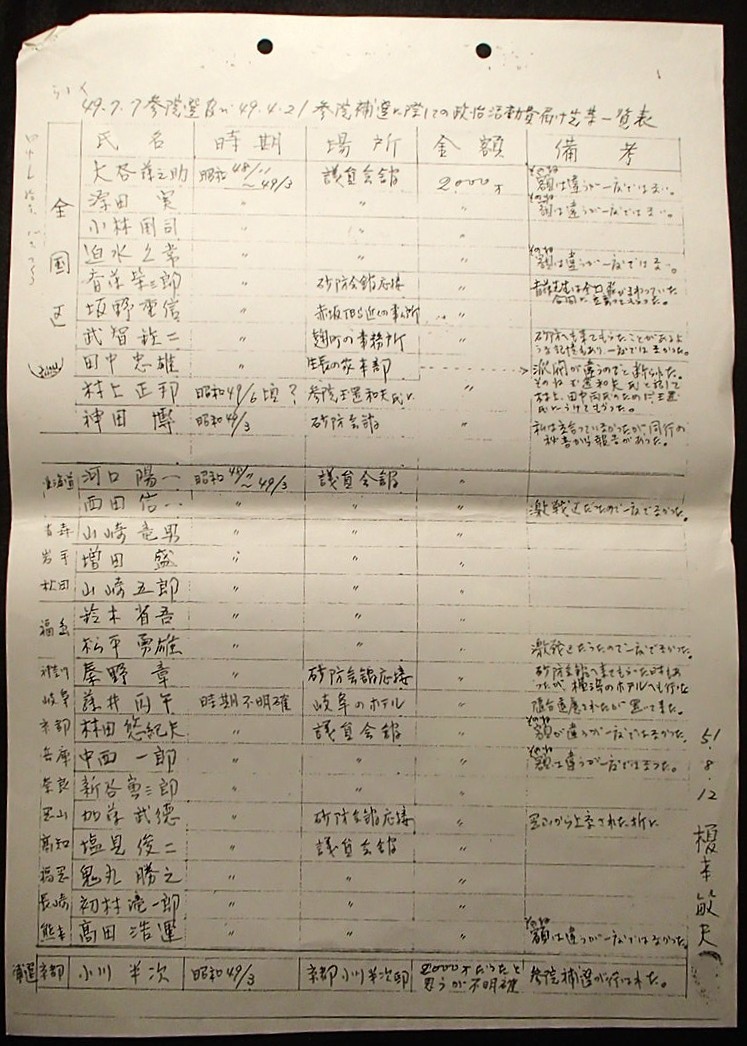 49.7.7参院選及び49.4.21参院補選に際しての政治活動費届け先等一覧表
氏名 時期 場所 金額 備考
全国区
大谷藤之助 昭和48/11～49/3 議員会館 2000万 その知 額は違うが一度ではない。
源田実 〃 〃 〃 額は違うが一度ではない。
小林国司 〃 〃 〃
迫水久常 〃 〃 〃 額は違うが一度ではない。
斎藤栄三郎 〃 砂防会館応接 〃
坂野重信 〃 赤坂 〃
武智鉄二 〃 麹町の事務所 〃 砂防へも来てもらったことがあるような記憶もあり、一度ではなかった。
田中忠雄 〃 生長の家本部
村上正邦 昭和49/6頃? 参院玉置和夫氏に 〃
神田博 昭和49/3 砂防会館 〃 私は立合っていなかったが同行の秘書から報告があった。
北海道 河口陽一 昭和48/11～49/3 議員会館 〃
西田信一 〃 〃 〃 激戦区だったので一度でなかった。
青森 山崎竜男 〃 〃 〃
岩手 増田盛 〃 〃 〃
秋田 山崎五郎 〃 〃 〃
福島 鈴木省吾 〃 〃 〃
松平勇雄 〃 〃 〃 激戦区だったので一度でなかった。
神奈川 秦野章 〃 砂防会館応接 〃 砂防会館へ来てもらった時もあったが、横浜のホテルへも行った
岐阜 藤井丙午 時期不明確 岐阜のホテル 〃 随分遠慮されたが置いてきた。
京都 林田悠紀夫 〃 議員会館 〃 額が違うが一度ではなかった。
兵庫 中西一郎 〃 〃 〃 額は違うが一度ではなかった。
奈良 新谷寅三郎 〃 〃 〃
岡山 加藤武徳 〃 砂防会館応接 〃 岡山から上京された折に
高知 塩見俊二 〃 議員会館 〃
福岡 鬼丸勝之 〃 〃 〃
長崎 初村滝一郎 〃 〃 〃
熊本 高田浩運 〃 〃 〃 額は違うが一度ではなかった。
補選 京都 小川半次 昭和49/3 京都小川半次邸 2000万だったと思うが不明確 参院補選が行なわれた。
51.8.12 榎本敏夫